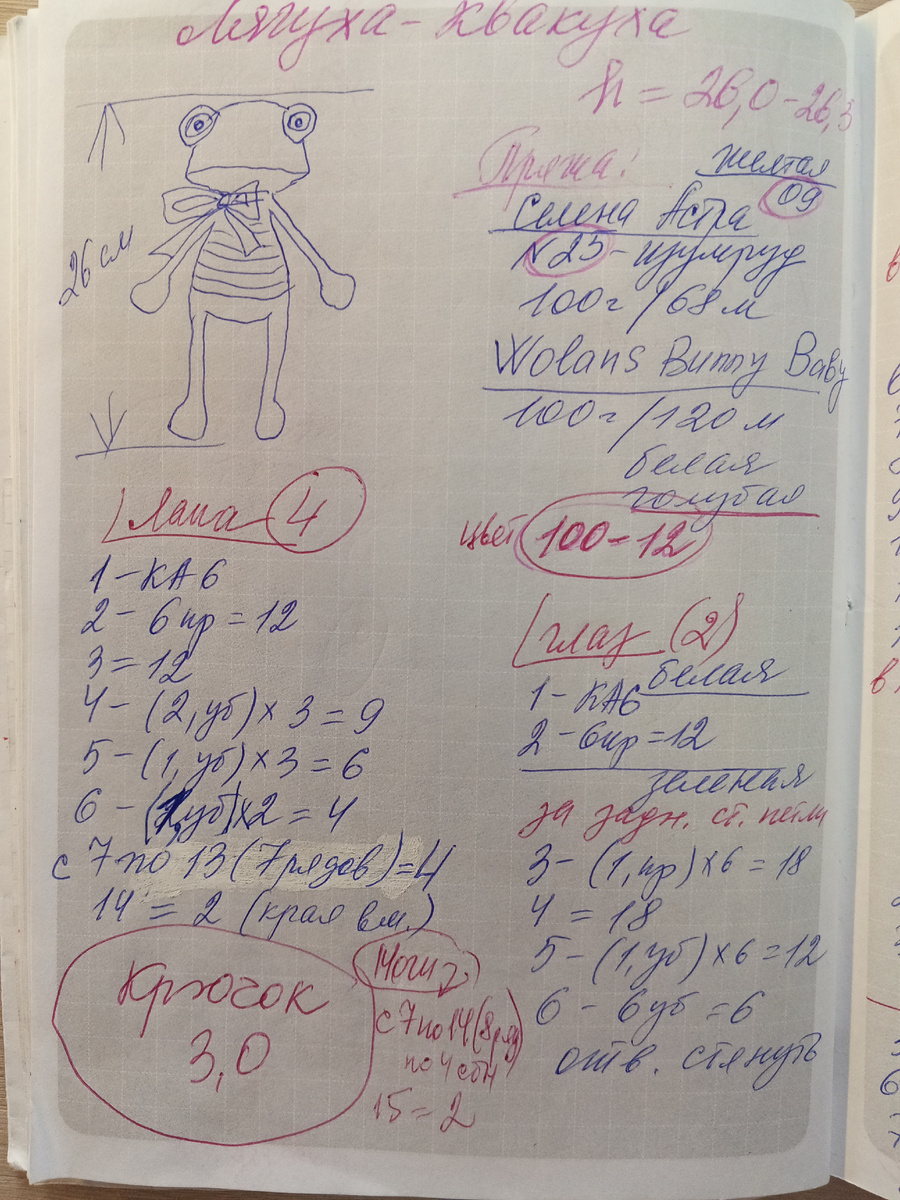 Лягуха-Квакуха
h = 26,0-26,3
26 см
Пряжа:
желтая
09
Селена Астра
№23 - изумруд
100г/68м
Wolans Bunny Baby
100г/120м
белая
голубая
цвет 100-12
Лапа 4
1 - КА6
2 - 6 пр = 12
3 = 12
4 - (2, уб) × 3 = 9
5 - (1, уб) × 3 = 6
6 - (1, уб) × 2 = 4
с 7 по 13 (7 рядов) = 4
14 = 2 (края вм.)
Крючок
3,0
Ноги 2
с 7 по 14 (8 ряд)
по 4 сбн
15 = 2
глаз (2)
белая
1 - КА6
2 - 6 пр = 12
зеленая
за задн. ст. петли
3 - (1, пр) × 6 = 18
4 = 18
5 - (1, уб) × 6 = 12
6 - 6 уб = 6
отв. стянуть